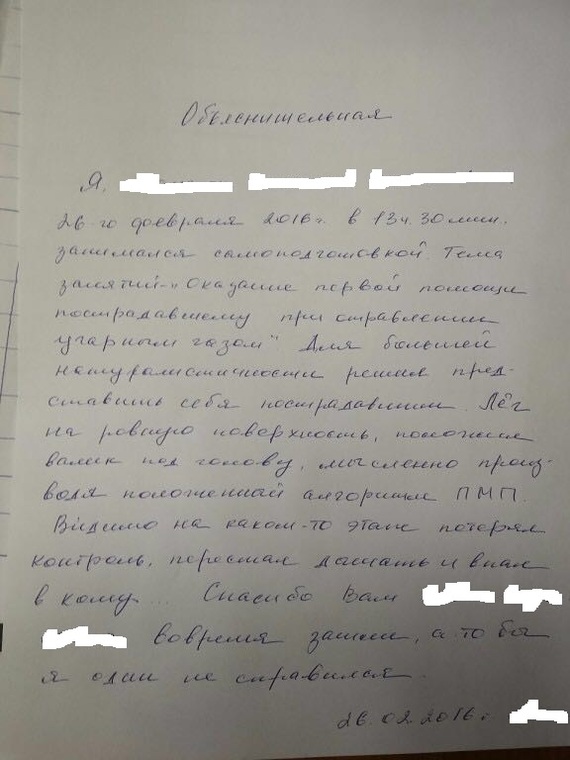 Объяснительная
Я,
26-го февраля 2016г. в 13ч. 30мин.
занимался самоподготовкой. Тема
занятий-"Оказание первой помощи
пострадавшему при отравлении
угарным газом" Для большей
натуралистичности решил пред-
ставить себя пострадавшим. Лёг
на ровную поверхность, положил
валик под голову, мысленно произ-
водя положенный алгоритм ПМП.
Видимо на каком-то этапе потерял
контроль, перестал дышать и впал
в кому... Спасибо Вам
вовремя зашли, а то бы
я один не справился.
26.02.2016г.